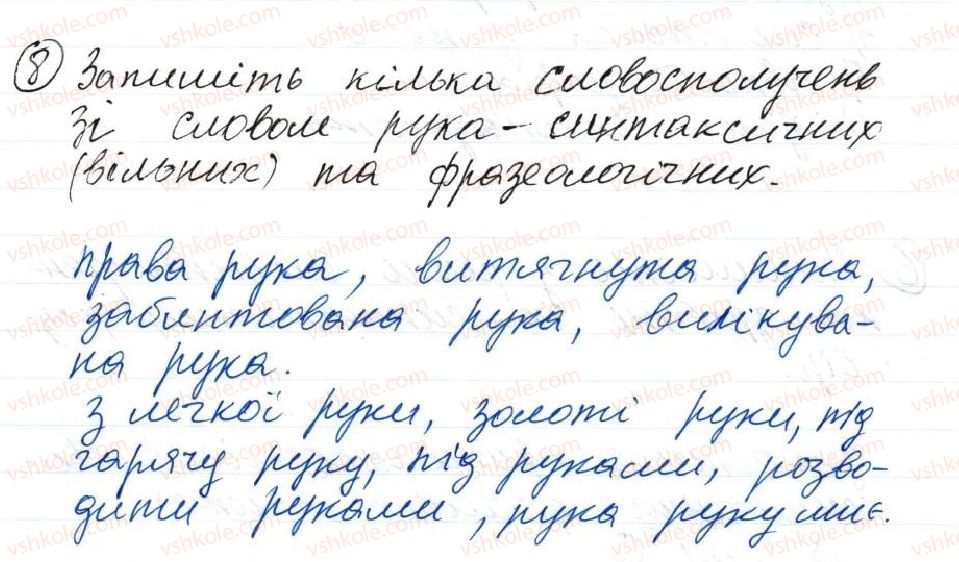 8 Запишіть кілька словосполучень
зі словом рука - синтаксичних
(вільних) та фразеологічних.
права рука, витягнута рука,
забинтована рука, вилікува-
на рука.
З легкої руки, золоті руки, під
гарячу руку, під руками, розво-
дити руками, рука руку миє.